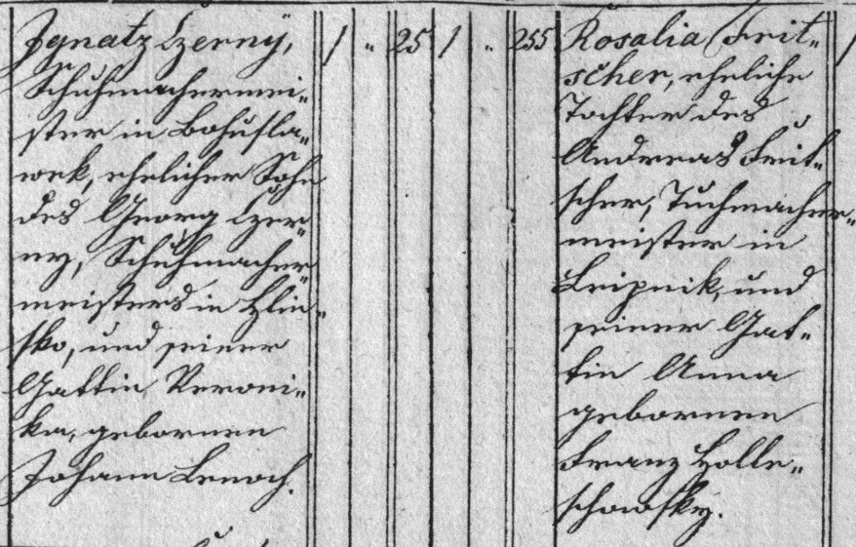 Ignatz Czerný,
Schuhmachermei-
ster in Bohusla-
wek, ehelicher Sohn
des Georg Czer-
ny, Schuhmacher-
meisters in Hlin-
sko, und seiner
Gattin Veroni-
ka, gebornen
Johann Lenoch.
1 " 25 1 " 255
Rosalia Frit-
scher, eheliche
Tochter des
Andreas Frit-
scher, Tuchmacher-
meister in
Leipnik, und
seiner Gat-
tin Anna
gebornen
Franz Holle-
schowsky.
1